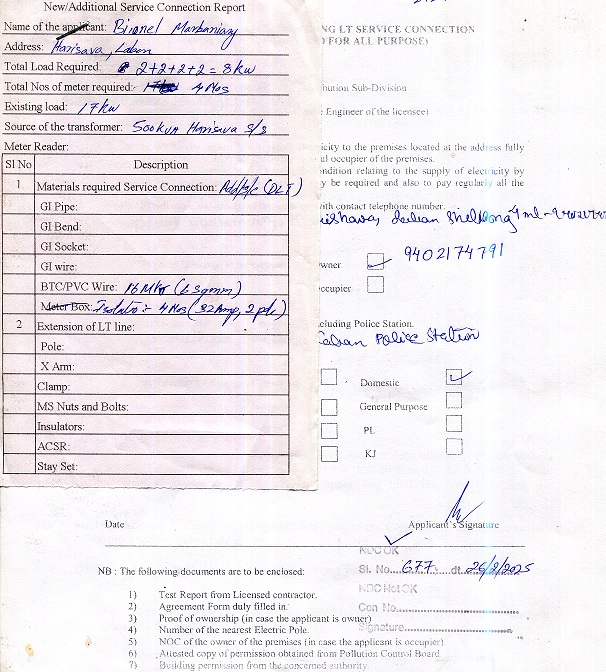 New/Additional Service Connection Report
Name of the applicant: Bironel Marbaniang
Address: Harisava, Laban
Total Load Required: 2+2+2+2 = 8kw
Total Nos of meter required: 4 Nos
Existing load: 17kw
Source of the transformer: 500KVA Harisava S/S
Meter Reader:
Sl No Description
1 Materials required Service Connection: Add/s/c (DLT)
GI Pipe:
GI Bend:
GI Socket:
GI wire:
BTC/PVC Wire: 16 Mtr
Meter Box: Isolator :- 4 Nos (32 Amp, 2 pole)
2 Extension of LT line:
Pole:
X Arm:
Clamp:
MS Nuts and Bolts:
Insulators:
ACSR:
Stay Set:
NG LT SERVICE CONNECTION
FOR ALL PURPOSE)
bution Sub-Division
Engineer of the licensee)
icity to the premises located at the address fully
al occupier of the premises.
ondition relating to the supply of electricity by
y be required and also to pay regularly all the
with contact telephone number.
Laban Shillong
wner 9402174791
ccupier
cluding Police Station.
Laban Police Station
Domestic
General Purpose
PL
KJ
Date Applicant's Signature
NDC OK
Sl. No. 677 dt. 26/2/2025
NDC Not OK
Con No.
Signature
NB : The following documents are to be enclosed:
1) Test Report from Licensed contractor.
2) Agreement Form duly filled in.
3) Proof of ownership (in case the applicant is owner)
4) Number of the nearest Electric Pole.
5) NOC of the owner of the premises (in case the applicant is occupier)
6) Attested copy of permission obtained from Pollution Control Board.
7) Building permission from the concerned authority.